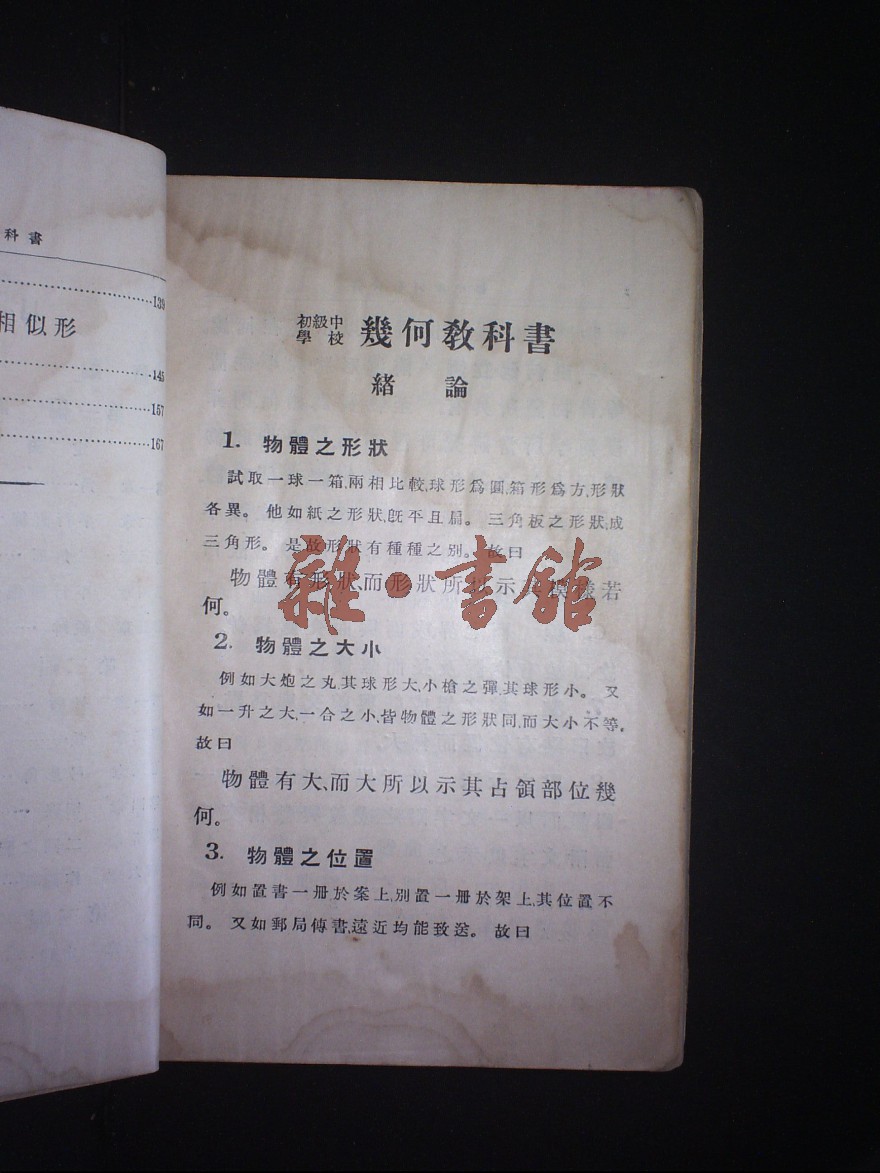 科書
139
相似形
145
157
167
初級中學校 幾何教科書
緒論
1. 物體之形狀
試取一球一箱,兩相比較,球形爲圓,箱形爲方,形狀
各異。 他如紙之形狀,旣平且扁。 三角板之形狀,成
三角形。 是故形狀有種種之別。 故曰
物體有形狀、而形狀所以示其模樣若
何。
雜·書館
2. 物體之大小
例如大炮之丸,其球形大,小槍之彈,其球形小。 又
如一升之大,一合之小,皆物體之形狀同,而大小不等,
故曰
物體有大、而大所以示其占領部位幾
何。
3. 物體之位置
例如置書一冊於案上,別置一冊於架上,其位置不
同。 又如郵局傳書,遠近均能致送。 故曰